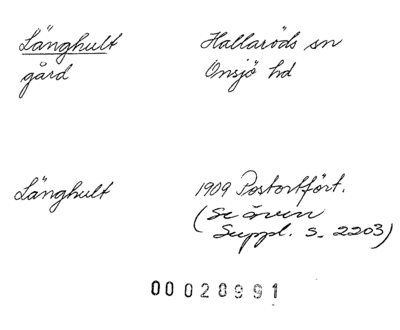 Länghult
gård
Hallaröds sn
Onsjö hd
Länghult
1909 Postortfört.
(Se även
Suppl. s. 2203)
00 028991